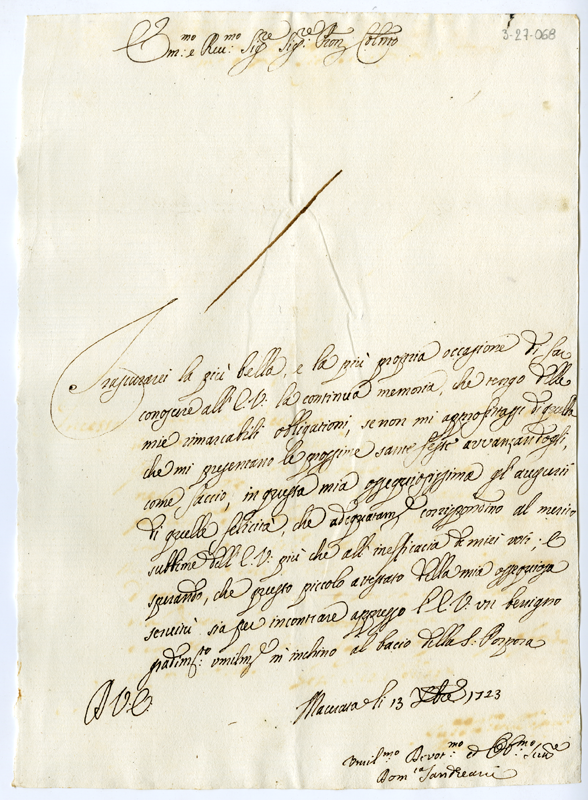 3-27-068
Em:mo e Rev:mo Sig.re Sig.re Pron Colmo
Trascurarei la più bella, e la più propria occasione di far
conoscere all'E.V. la continua memoria, che tengo delle
mie rimarcabili obligationi, se non mi approfitassi di quella
che mi presentano le prossime sante feste avvanzandogli,
come faccio, in questa mia ossequiosissima gl'augurii
di quelle felicità, che adequatam.te corrispondino al merito
sublime dell'E.V. più che all'inefficacia de miei voti; e
sperando, che questo piccolo attestato della mia ossequiosa
servitù sia per incontrare appresso l'E.V. un benigno
gradim:to umilm.te m'inchino al bacio della S: Porpora
D V.E.
Macerata li 13 Xbre 1723
Umil.mo Devot.mo et Obb.mo Serv.re
Dom.co